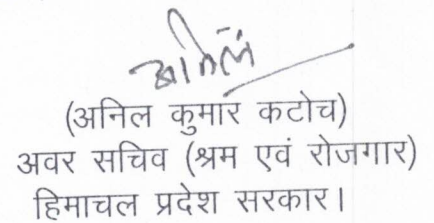 अनिल
(अनिल कुमार कटोच)
अवर सचिव (श्रम एवं रोजगार)
हिमाचल प्रदेश सरकार।